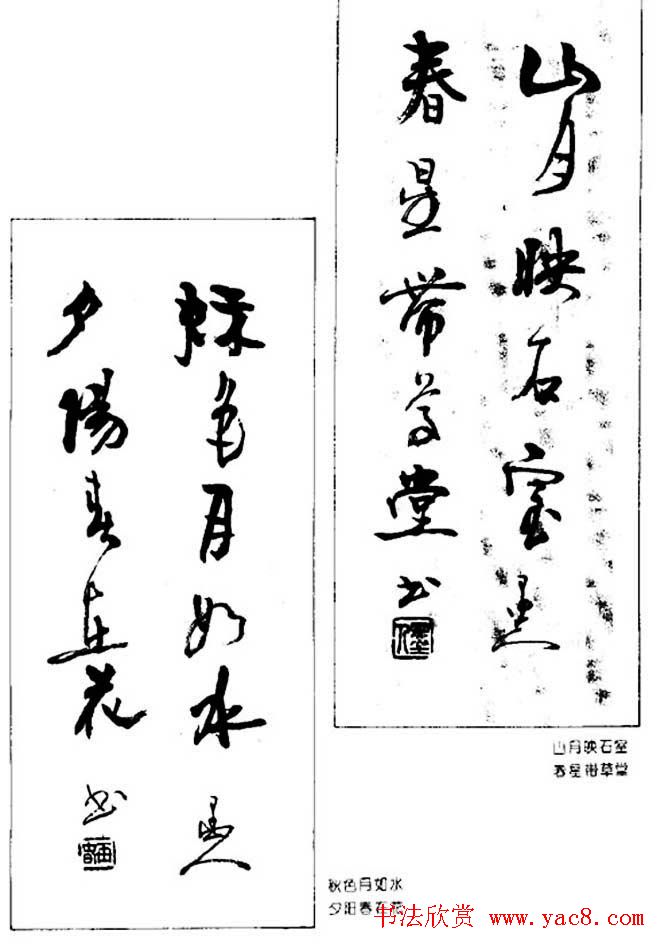 山月映石室
墨人
春星带草堂
书
秋色月如水
墨人
夕陽春在花
书
山月映石室
春星带草堂
秋色月如水
夕阳春在花
书法欣赏 www.yac8.com